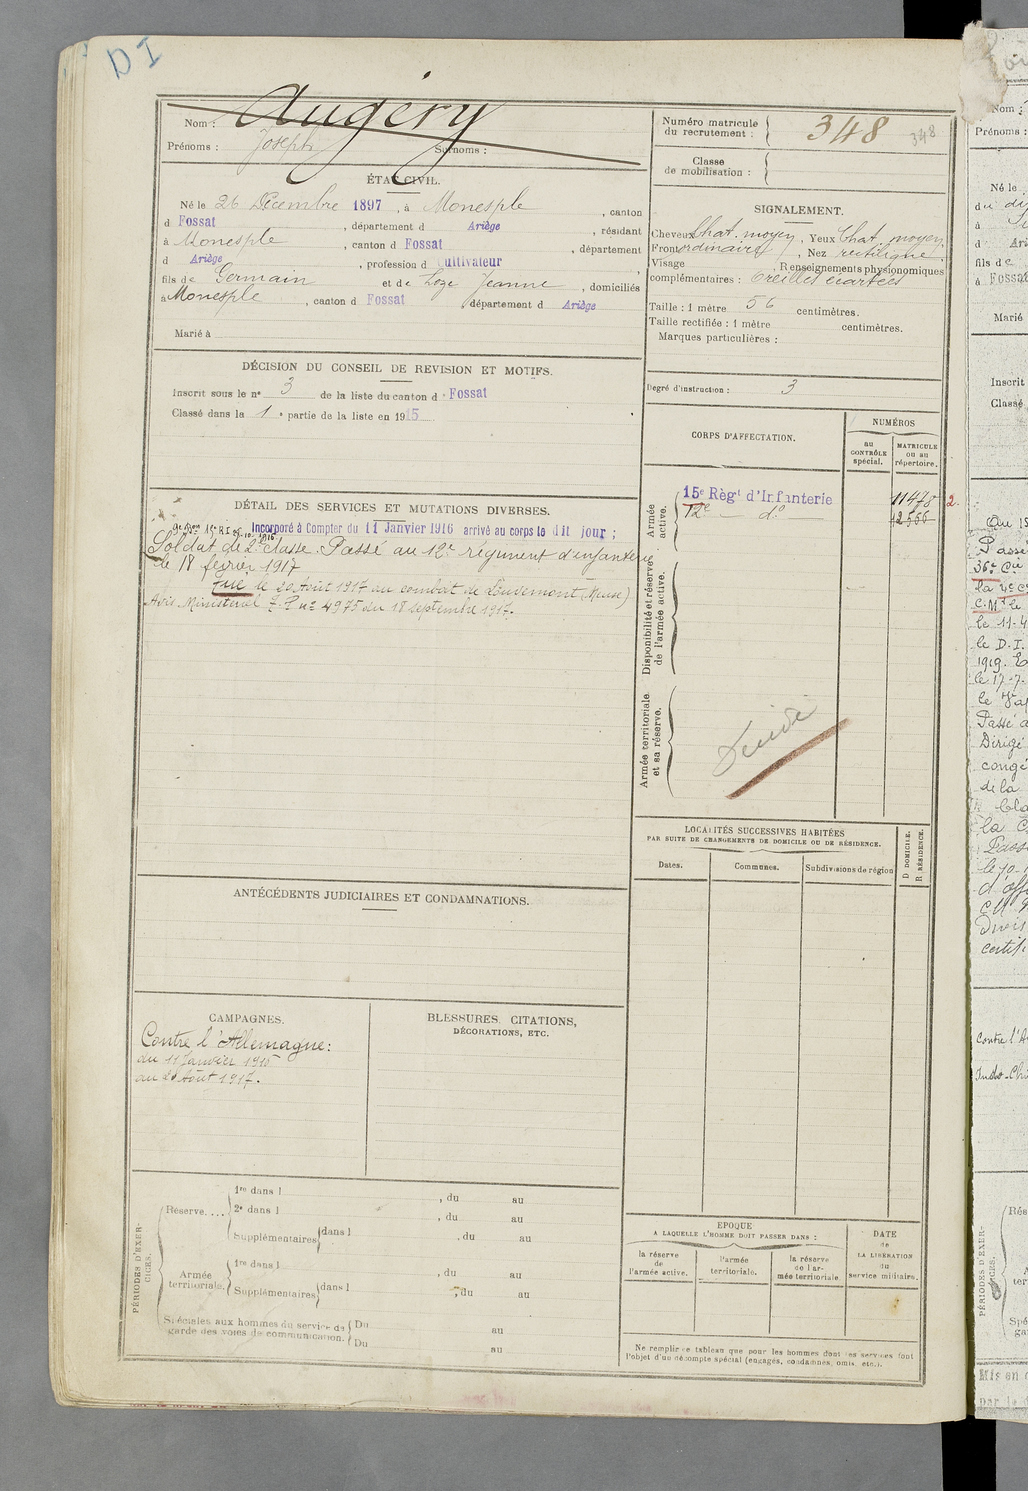 DI
Nom : Augéry
Prénoms : Joseph Surnoms :
ÉTAT CIVIL.
Né le 26 Décembre 1897, à Monesple, canton
d Fossat, département d Ariège, résidant
à Monesple, canton d Fossat, département
d Ariège, profession d Cultivateur,
fils de Germain et de Loze Jeanne, domiciliés
à Monesple, canton d Fossat département d Ariège
Marié à
Numéro matricule du recrutement : 348 348
Classe de mobilisation :
SIGNALEMENT.
Cheveux Chat. moyen, Yeux Chat. moyen,
Front ordinaire, Nez rectiligne
Visage , Renseignements physionomiques
complémentaires : Oreilles écartées
Taille : 1 mètre 56 centimètres.
Taille rectifiée : 1 mètre centimètres.
Marques particulières :
DÉCISION DU CONSEIL DE REVISION ET MOTIFS.
Inscrit sous le n° 3 de la liste du canton d Fossat
Classé dans la 1e partie de la liste en 1915
Degré d'instruction : 3
CORPS D'AFFECTATION.
NUMÉROS
au CONTRÔLE spécial.
MATRICULE ou au répertoire.
Armée active.
15e Régt d'Infanterie 11478
12e — do — 12566
2.
Disponibilité et réserve de l'armée active.
Armée territoriale et sa réserve.
DÉTAIL DES SERVICES ET MUTATIONS DIVERSES.
Incorporé à Compter du 11 Janvier 1916 arrivé au corps le dit jour ;
Soldat de 2e classe. Passé au 12e régiment d'infanterie
le 18 février 1917
Tué le 20 Août 1917 au combat de Louvemont (Meuse)
Avis Ministériel n° 4975 du 18 septembre 1917.
ANTÉCÉDENTS JUDICIAIRES ET CONDAMNATIONS.
LOCALITÉS SUCCESSIVES HABITÉES
PAR SUITE DE CHANGEMENTS DE DOMICILE OU DE RÉSIDENCE.
Dates.
Communes.
Subdivisions de région
D DOMICILE.
R RÉSIDENCE.
CAMPAGNES.
Contre l'Allemagne :
du 11 Janvier 1916
au 20 Août 1917.
BLESSURES, CITATIONS,
DÉCORATIONS, ETC.
PÉRIODES D'EXERCICES.
Réserve....
1re dans l , du au
2e dans l , du au
Supplémentaires dans l , du au
Armée territoriale.
1re dans l , du au
Supplémentaires dans l , du au
Spéciales aux hommes du service de garde des voies de communication.
Du au
Du au
EPOQUE
A LAQUELLE L'HOMME DOIT PASSER DANS :
la réserve de l'armée active.
l'armée territoriale.
la réserve de l'armée territoriale
DATE de LA LIBÉRATION du service militaire.
Ne remplir ce tableau que pour les hommes dont les services font
l'objet d'un décompte spécial (engagés, condamnés, omis, etc.).
Nom :
Prénoms :
Né le
à Fossat
Marié
Inscrit
Classé
Passé
36e Cie
le 11-4
le D.I.
1919.
le 17-7
Passé
Dirigé
congé
de la
Contre l'A
Indo-Chi
PÉRIODES D'EXERCICES.
Mis en
par le